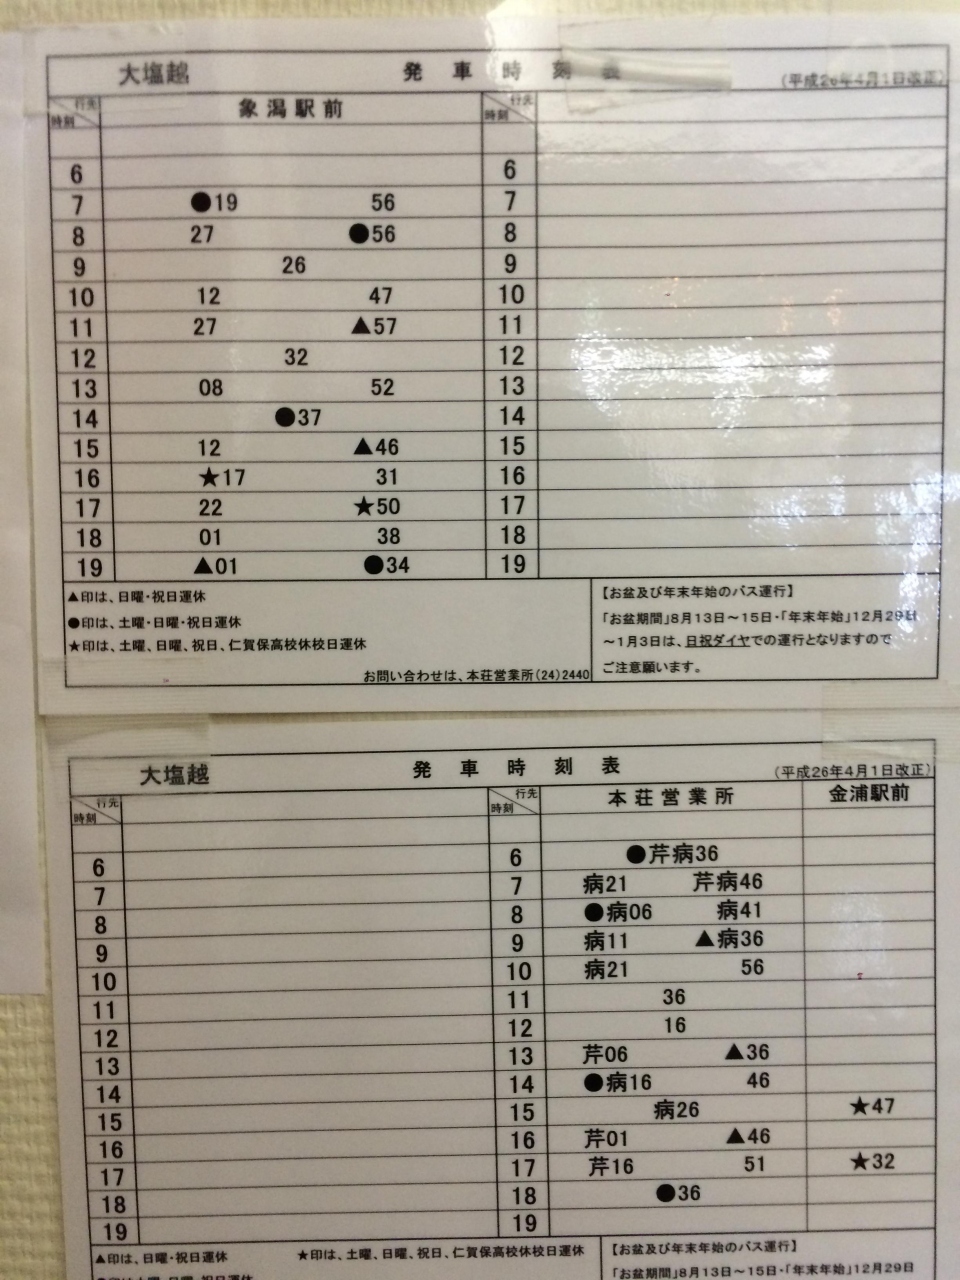 大塩越 発車時刻表 (平成26年4月1日改正)
行先 時刻 象潟駅前 行先 時刻
6 6
7 ●19 56 7
8 27 ●56 8
9 26 9
10 12 47 10
11 27 ▲57 11
12 32 12
13 08 52 13
14 ●37 14
15 12 ▲46 15
16 ★17 31 16
17 22 ★50 17
18 01 38 18
19 ▲01 ●34 19
▲印は、日曜・祝日運休
●印は、土曜・日曜・祝日運休
★印は、土曜、日曜、祝日、仁賀保高校休校日運休
お問い合わせは、本荘営業所(24)2440
【お盆及び年末年始のバス運行】
「お盆期間」8月13日～15日・「年末年始」12月29日
～1月3日は、日祝ダイヤでの運行となりますので
ご注意願います。
大塩越 発車時刻表 (平成26年4月1日改正)
行先 時刻 行先 時刻 本荘営業所 金浦駅前
6 6 ●芹病36
7 7 病21 芹病46
8 8 ●病06 病41
9 9 病11 ▲病36
10 10 病21 56
11 11 36
12 12 16
13 13 芹06 ▲36
14 14 ●病16 46
15 15 病26 ★47
16 16 芹01 ▲46
17 17 芹16 51 ★32
18 18 ●36
19 19
▲印は、日曜・祝日運休 ★印は、土曜、日曜、祝日、仁賀保高校休校日運休
【お盆及び年末年始のバス運行】
「お盆期間」8月13日～15日・「年末年始」12月29日